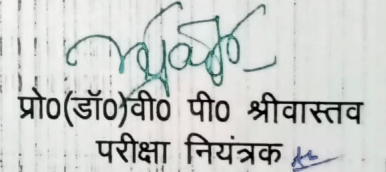 प्रो0(डॉ0)वी0 पी0 श्रीवास्तव
परीक्षा नियंत्रक